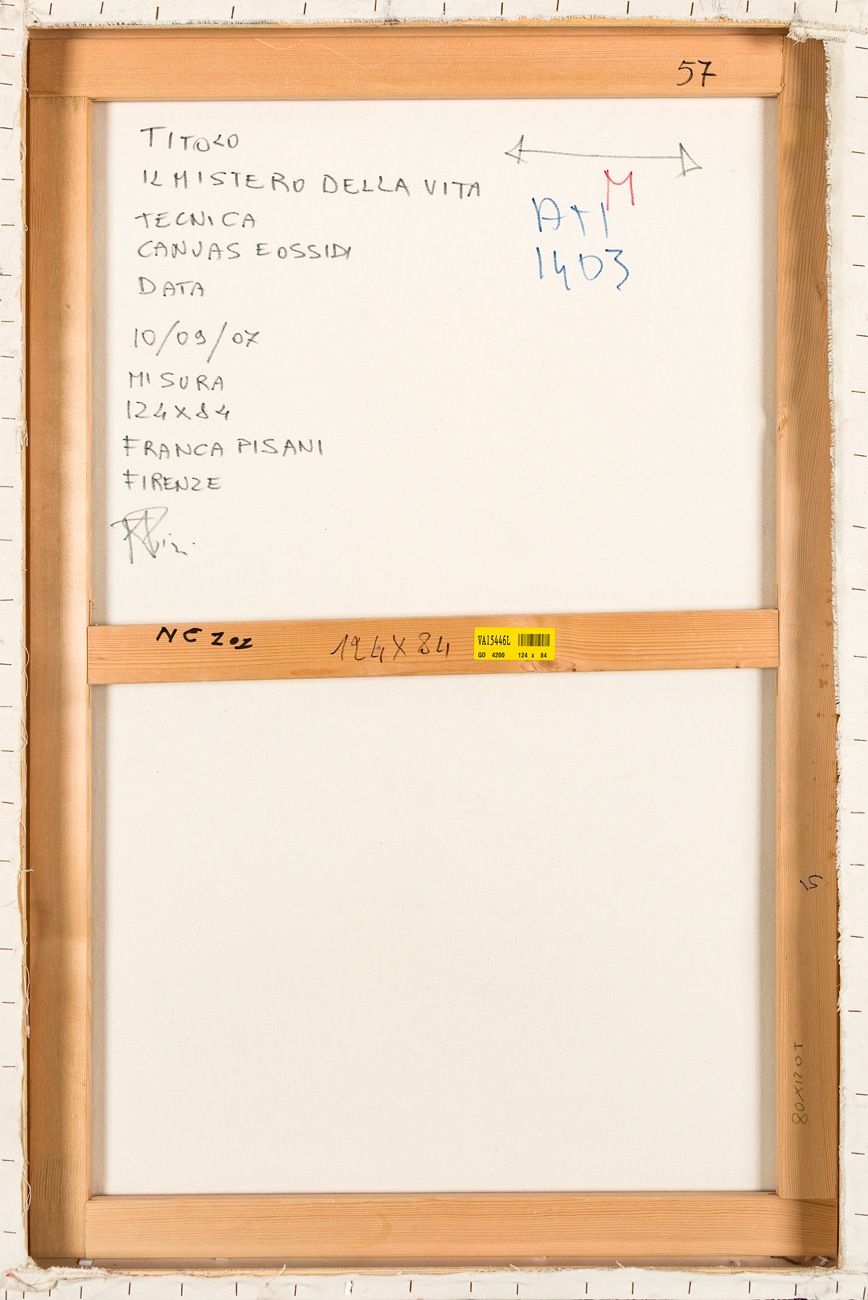 57
TITOLO
IL MISTERO DELLA VITA
TECNICA
CANVAS E OSSIDI
DATA
10/09/07
MISURA
124X84
FRANCA PISANI
FIRENZE
M
1403
NE 202
124X84
VA15446L
QD 4200 124 x 84
80X120T